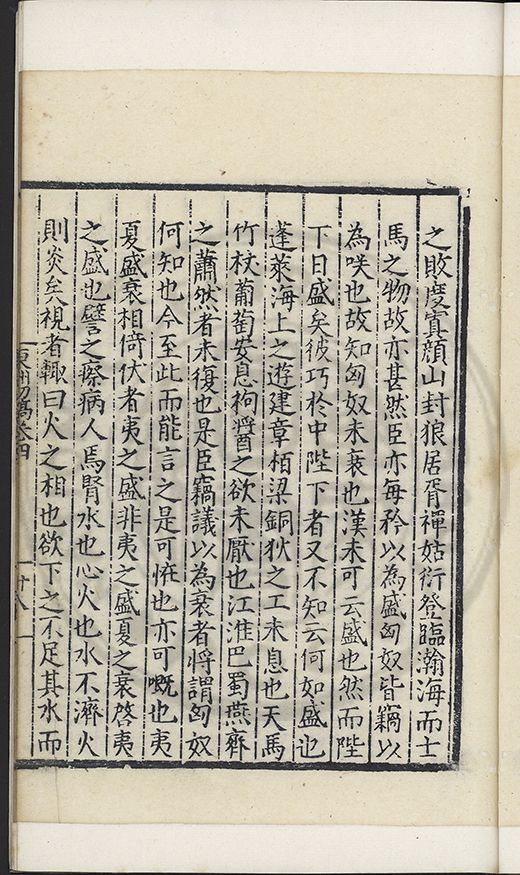 之敗度寘顏山封狼居胥禪姑衍登臨瀚海而士
馬之物故亦甚然臣亦每矜以為盛匈奴皆竊以
為咲也故知匈奴未衰也漢未可云盛也然而陛
下日盛矣彼巧於中陛下者又不知云何如盛也
蓬萊海上之遊建章栢梁銅狄之工未息也天馬
竹杖葡萄安息枸醬之欲未厭也江淮巴蜀燕齊
之蕭然者未復也是臣竊議以為衰者將謂匈奴
何知也今至此而能言之是可恠也亦可嘅也夷
夏盛衰相倚伏者夷之盛非夷之盛夏之衰啓夷
之盛也譬之瘵病人焉腎水也心火也水不濟火
則炎矣視者輙曰火之相也欲下之不足其水而
東洲初稿卷四
廿八